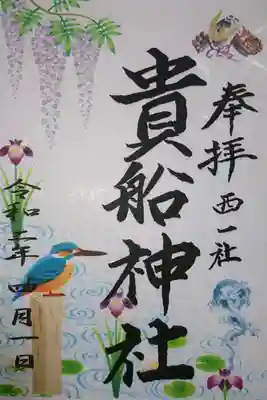 奉拝
西一社
貴船神社
令和二年 四月一日